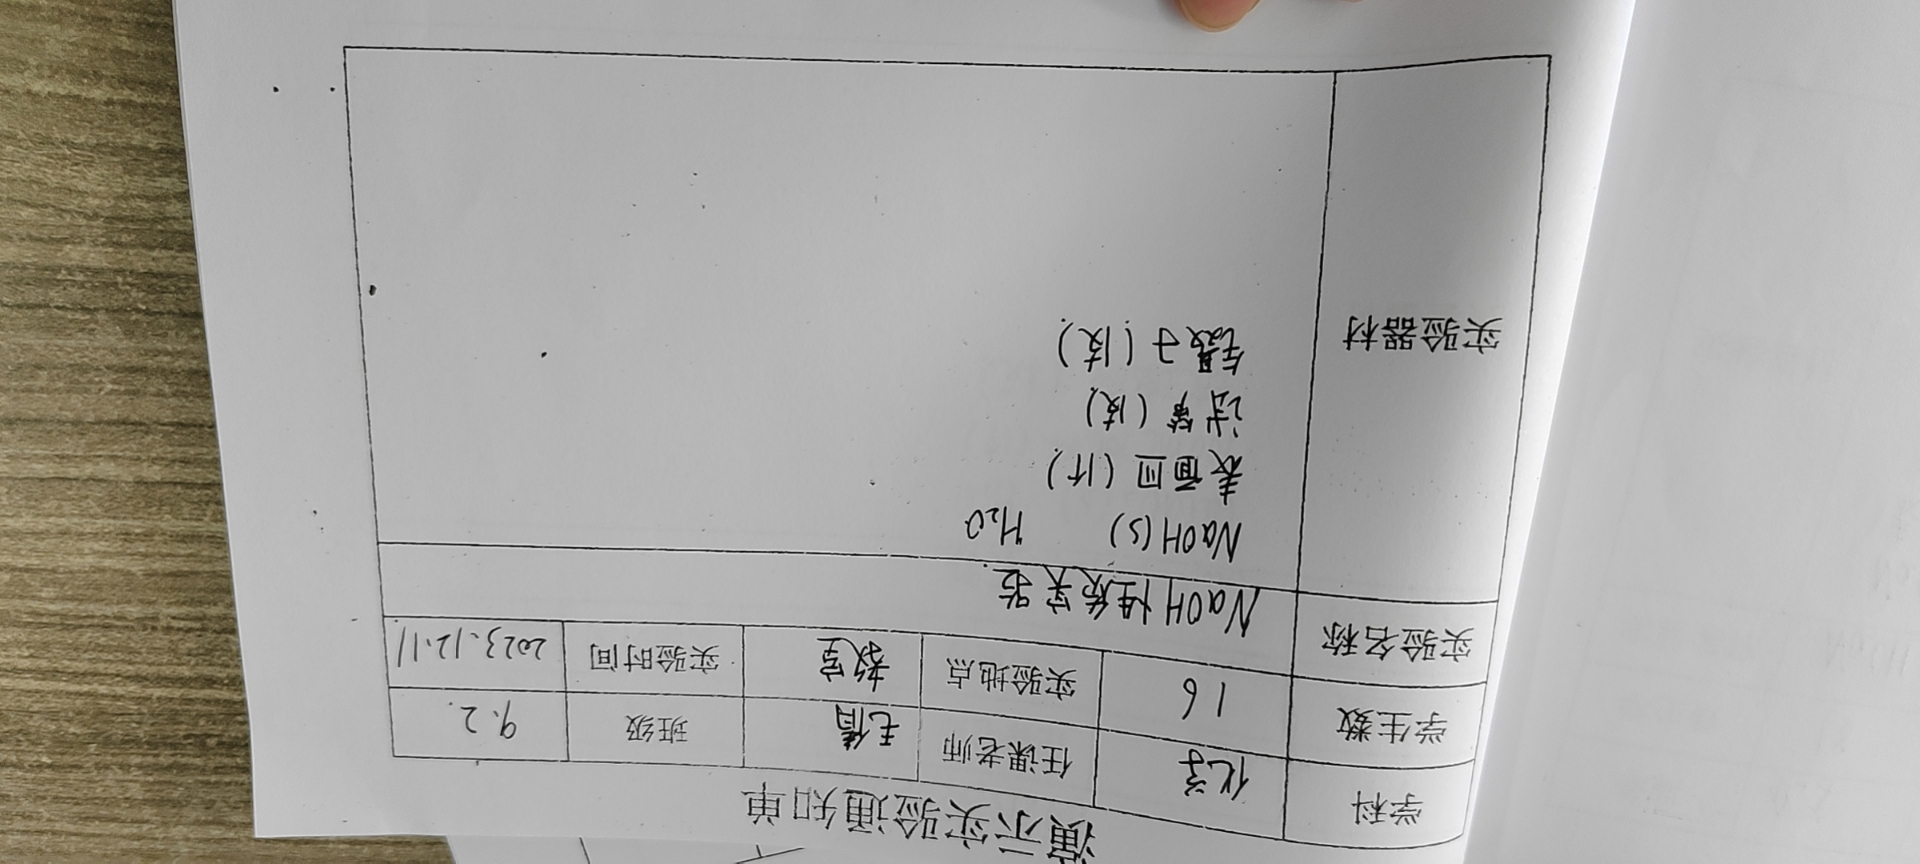 演示实验通知单
学科 化学 任课老师 毛倩 班级 9.2.
学生数 16 实验地点 教室 实验时间 2023.12.11
实验名称 NaOH性质实验
实验器材
NaOH(s) H₂O
表面皿(1个)
试管(1支)
镊子(1支)